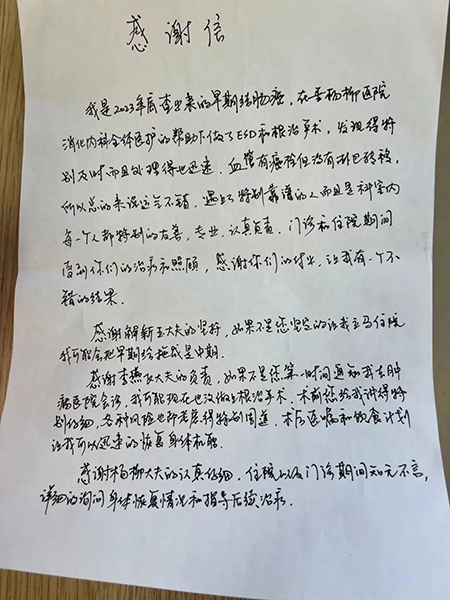 感谢信
我是2023年底查出来的早期结肠癌，在杨柳医院
消化内科全体医护的帮助下做了ESD和根治手术，发现得特
别及时而且处理得也迅速，血管有癌栓但没有淋巴转移，
所以总的来说运气不错，遇上了特别靠谱的人而且是科室内
每一个人都特别的友善，专业，认真负责．门诊和住院期间
受到你们的治疗和照顾，感谢你们的付出，让我有一个不
错的结果．
感谢解新大夫的坚持，如果不是您坚定的让我立马住院
我可能会把早期给拖成是中期．
感谢李燕大夫的负责，如果不是您第一时间通知我去肿
瘤医院会诊，我可能现在也没做上根治手术．术前您给我讲得特
别仔细，各种风险也都考虑得特别周道．术后医嘱和饮食计划
让我可以迅速的恢复身体机能．
感谢杨柳大夫的认真仔细，住院以及门诊期间知无不言，
详细的询问身体恢复情况和指导后续治疗．